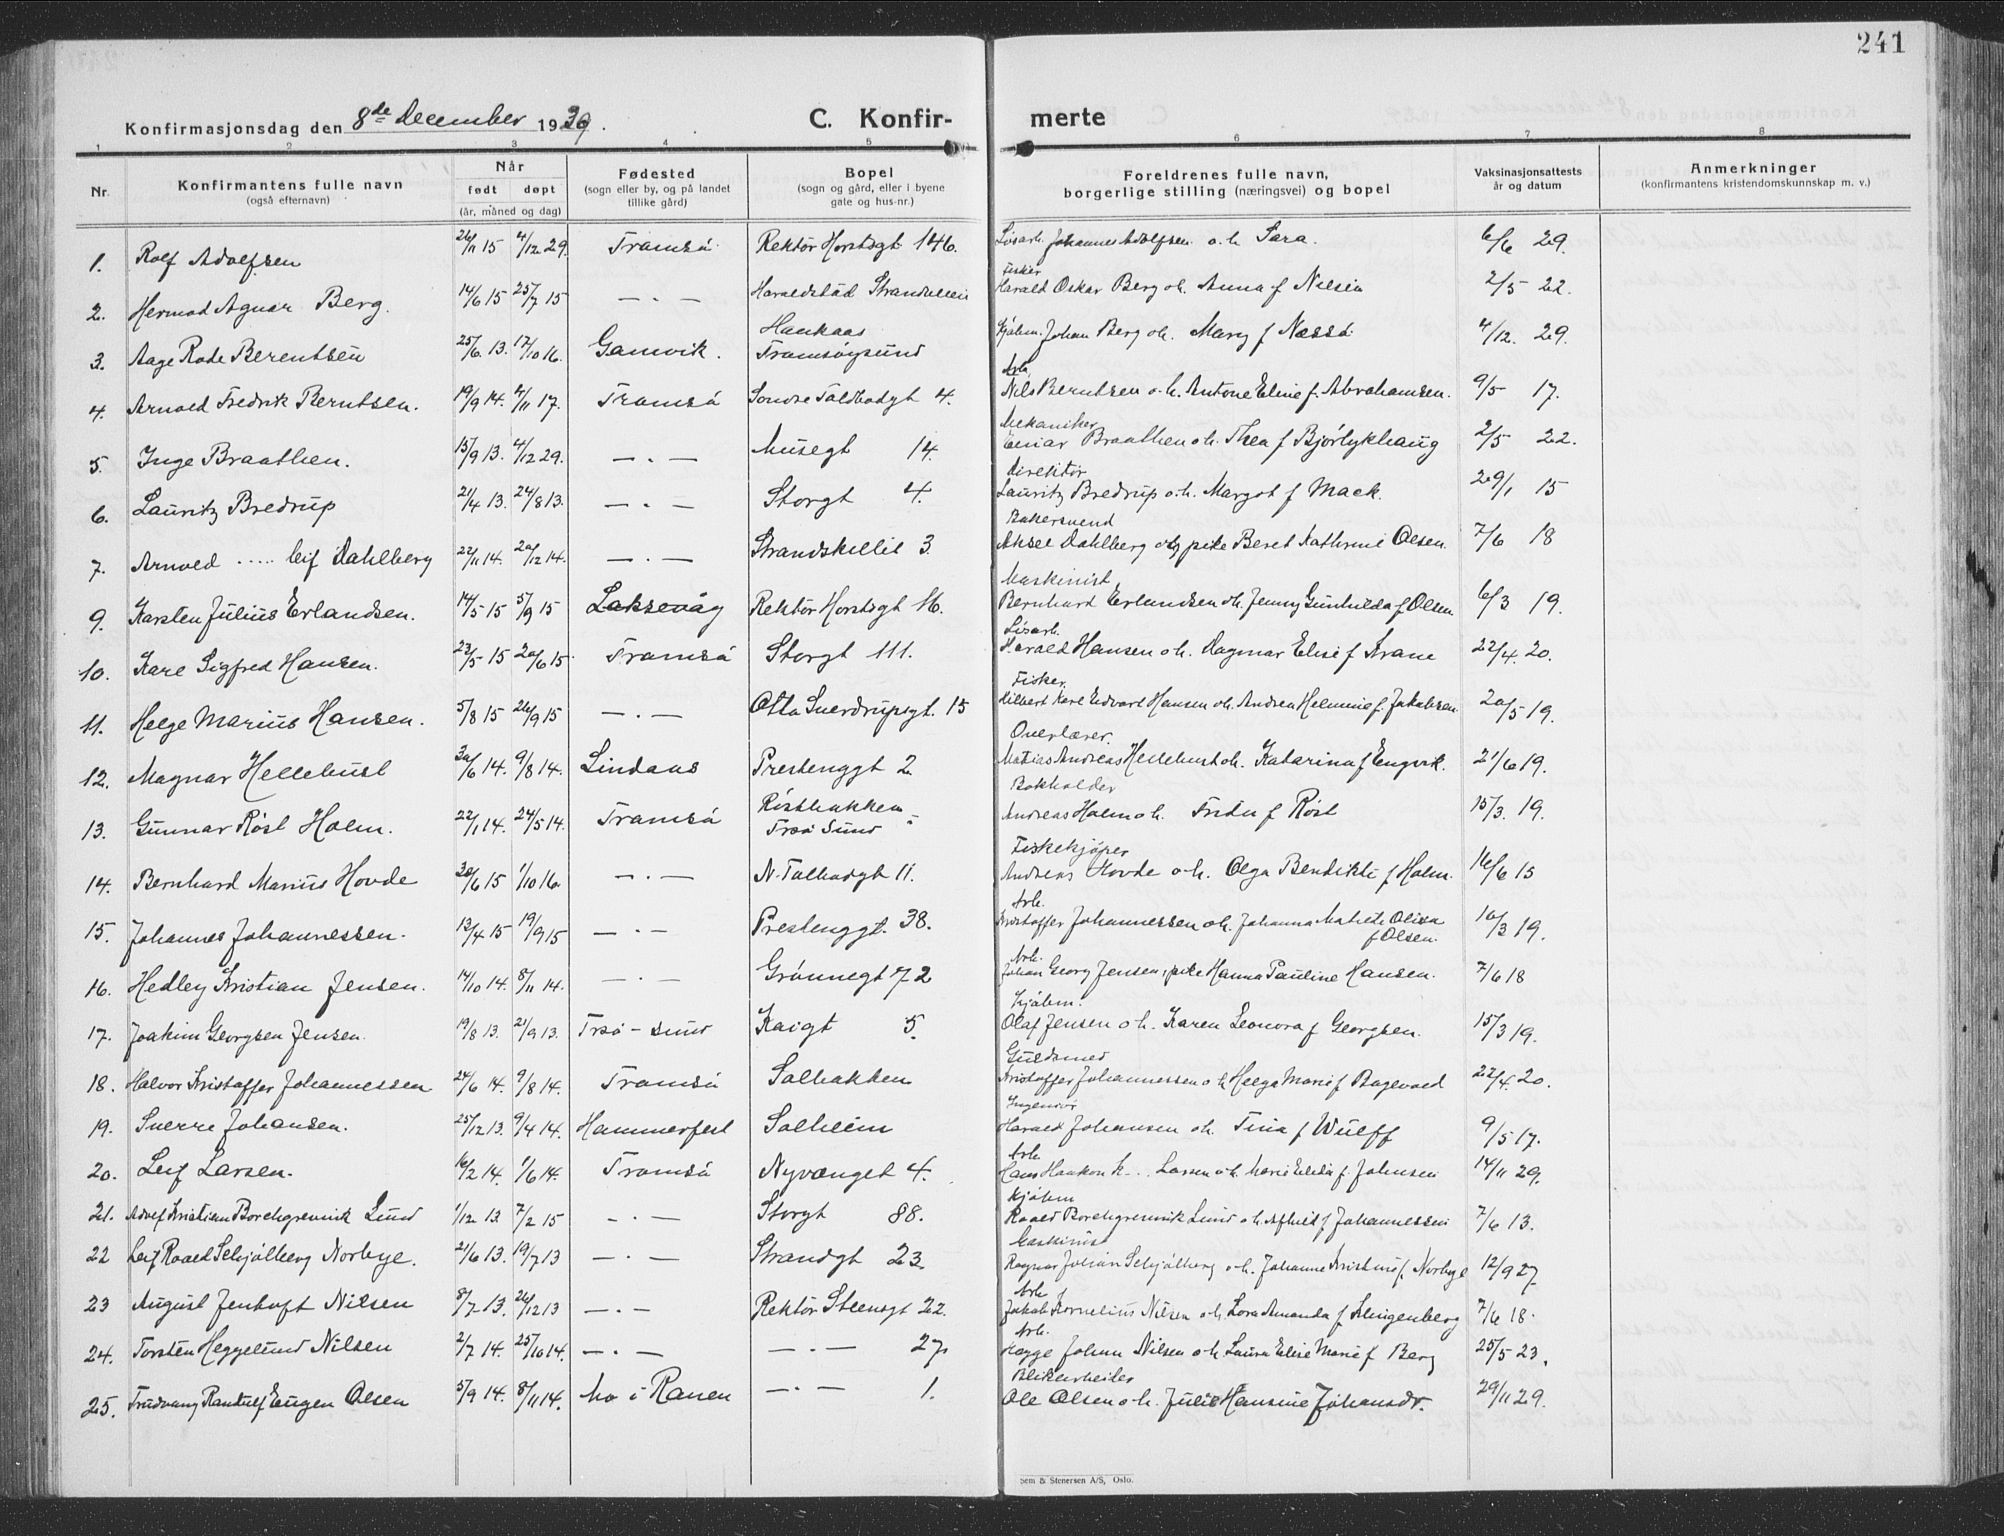 241
Konfirmasjonsdag den 8de December 1929.
C. Konfir-
merte
1 2 3 4 5 6 7 8
Nr.
Konfirmantens fulle navn
(også efternavn)
Når
født døpt
(år, måned og dag)
Fødested
(sogn eller by, og på landet
tillike gård)
Bopel
(sogn og gård, eller i byene
gate og hus-nr.)
Foreldrenes fulle navn,
borgerlige stilling (næringsvei) og bopel
Vaksinasjonsattests
år og datum
Anmerkninger
(konfirmantens kristendomskunnskap m. v.)
1. Rolf Adolfsen 26/11 15 4/12 29. Tromsö Rektör Horstsgt 146. Lösarb. Johannes Adolfsen o. h. Sara. 6/6 29.
2. Hermod Agnar Berg. 14/6 15 25/7 15 — . — Haraldstad Strandveien Fisker Harald Oskar Berg o h. Anna f Nilsen 2/5 22.
3. Aage Rode Berentsen 25/6 13. 17/10 16. Gamvik. Tromsöysund Johan Berg o h. Mary f Næssö 4/12. 29.
4. Arnold Fredrik Berntsen. 19/9 14. 4/11 17. Tromsö Sondre Toldbodgt 4. Arb. Nils Berntsen o. h. Antone Eline f. Abrahamsen. 9/5 17.
5. Inge Braathen. 15/9 13. 4/12 29. — . — Musegt 14. Mekaniker Einar Braathen o. h. Thea f Bjørlykhaug 2/5 22.
6. Lauritz Bredrup 21/4 13. 24/8 13. — . — Storgt 4. Direktör Lauritz Bredrup o. h. Margot f Mack. 29/1 15
7. Arnold ..... Leif Dahlberg 22/11 14. 20/12 14. — . — Strandskillet 3. Bakersvend Aksel Dahlberg og pike Beret Kathrine Olsen. 7/6 18
9. Karsten Julius Erlandsen. 14/5 15 5/9 15 Laksevåg Rektör Horstsgt 16. Maskinist Bernhard Erlandsen o h. Jenny Gunhilda f Olsen 6/3 19.
10. Kare Sigfred Hansen. 23/5 15 20/6 15 Tromsö Storgt 111. Lösarb. Harald Hansen o h. Dagmar Elise f Krane 22/4. 20.
11. Helge Marius Hansen. 5/8 15 26/9 15 — . — Otto Sverdrupsgt. 15 Fisker. Hilbert Karl Edvart Hansen o h. Andrea Helmine f. Jakobsen 20/5 19.
12. Magnar Hellebust 30/6 14. 9/8 14. Lindaas Prestenggt 2. Overlærer. Matias Andreas Hellebust o h. Katarina f Engvik. 21/6 19.
13. Gunnar Röst Holm. 22/1 14. 24/5 14. Tromsö Röstbakken Trsö Sund Bokholder Andreas Holm o h. Frida f Röst 15/3. 19.
14. Bernhard Marius Hovde 30/6 15 1/10 16. — . — N. Tolbodgt 11. Fiskekjöper Andreas Hovde o. h. Olga Bendikte f Holm. 16/6 15
15. Johannes Johannessen. 13/4 15 19/9 15 — . — Prestenggt. 38. Arb. Kristoffer Johannessen o h. Johanna Mahete Olisa f Olsen. 16/3 19.
16. Hedley Kristian Jensen. 14/10 14. 8/11 14. — . — Grönnegt 72 Arb. Johan Georg Jensen, pike Hanna Pauline Hansen. 7/6 18
17. Joakim Georgsen Jensen. 19/8 13. 21/9 13. Trsö - sund Kaigt 5. Kjöbm. Olaf Jensen o h. Karen Leonora f Georgsen. 15/3 19.
18. Halvor Kristoffer Johannessen 24/6 14. 9/8 14. Tromsö Solbakken Guldsmed Kristoffer Johannessen o h Helga Marie f Bogevold 22/4 20.
19. Sverre Johansen. 25/12 13. 9/4 14. Hammerfest Solheim Ingeniör Harald Johansen o h. Tina f Wulff 9/5 17.
20. Leif Larsen. 16/2 14. 1/6 14. Tromsö Nyvænget 4. Arb. Hans Haakon K... Larsen o h. Marie Elida f. Johnsen 14/11 29.
21. Adolf Kristian Borchgrevink Lund 1/12 13. 7/2 15 — . — Storgt 88. Kjöbm Roald Borchgrevink Lund o h. Alfhild f Johannessen 7/6 13.
22 Leif Roald Schjölberg Norbye. 21/6 13. 19/7 13 — . — Strandgt 23. Ragnar Johan Schjölberg o. h. Johanne Kristine f. Norbye 12/9 27
23 August Jentoft Nilsen 8/7 13. 26/12 13 — . — Rektör Steensgt 22. Arb Jakob Kornelius Nilsen o h. Lora Amanda f Klingenberg 7/6 18.
24. Torsten Heggelund Nilsen 2/7 14. 25/10 14. — . — — . — 27. Arb. Hegge Johan Nilsen o h Laura Elise Marie f Berg 25/5 23.
25. Trudvang Randulf Eugen Olsen 5/9 14. 8/11 14. Mo i Ranen — . — 1. Blikarbeider Ole Olsen o. h. Julie Hansine Johansdr. 29/11 29.
Sem & Stenersen A/S, Oslo.